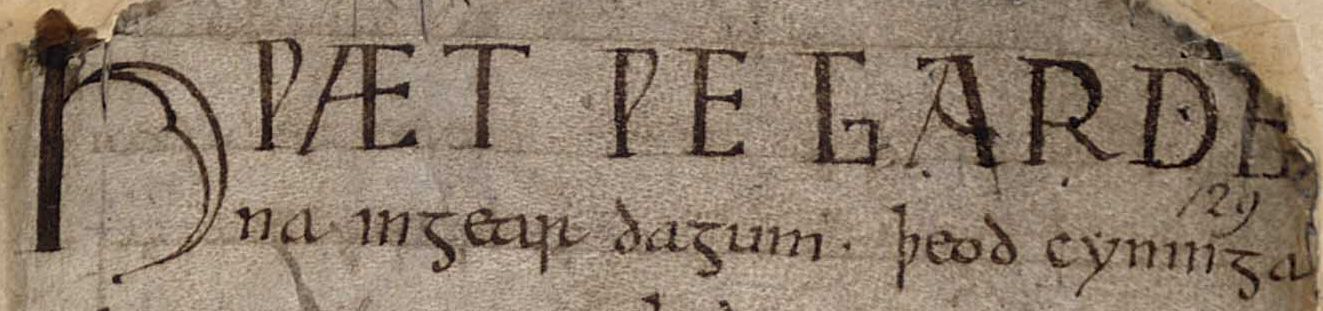 HǷÆT ǷE GARDE
129
na ingear dagum. þeod cyninga